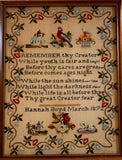 REMEMBER thy Creator
While youth is fair and
Before thy cares are great
Before comes ages night
While the sun shines
While light the darkness
While life is all before thee
Thy great Creator fear
Hannah Boyd March